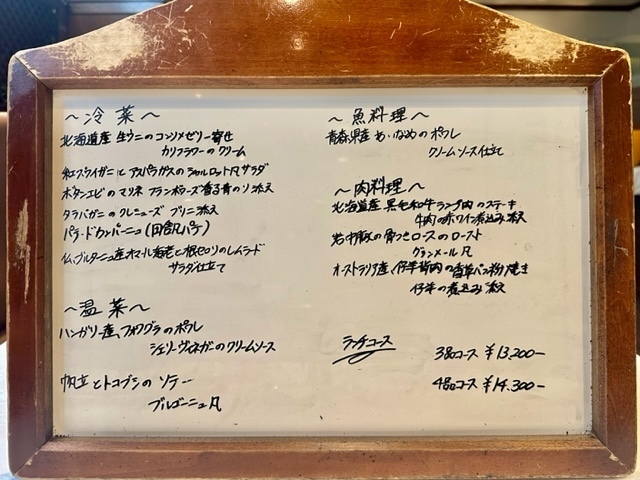 ～冷菜～
北海道産 生ウニのコンソメゼリー寄せ
カリフラワーのクリーム
紅ズワイガニとアスパラガスのシャルロット風サラダ
ボタンエビのマリネ フランボワーズ香る青のソ添え
タラバガニのクレミューズ ブリニ添え
パテ・ド・カンパーニュ(田舎風パテ)
仏、ブルターニュ産オマール海老と根セロリのレムラード
サラダ仕立て
～温菜～
ハンガリー産、フォワグラのポワレ
シェリーヴィネガーのクリームソース
帆立とトコブシのソテー
ブルゴーニュ風
～魚料理～
青森県産 あいなめのポワレ
クリームソース仕立て
～肉料理～
北海道産 黒毛和牛ランプ肉のステーキ
牛肉の赤ワイン煮込み添え
岩中豚の骨つきロースのロースト
グランメール風
オーストラリア産、仔羊背肉の香草パン粉焼き
仔羊の煮込み添え
ランチコース
3品コース ¥13,200-
4品コース ¥14,300-